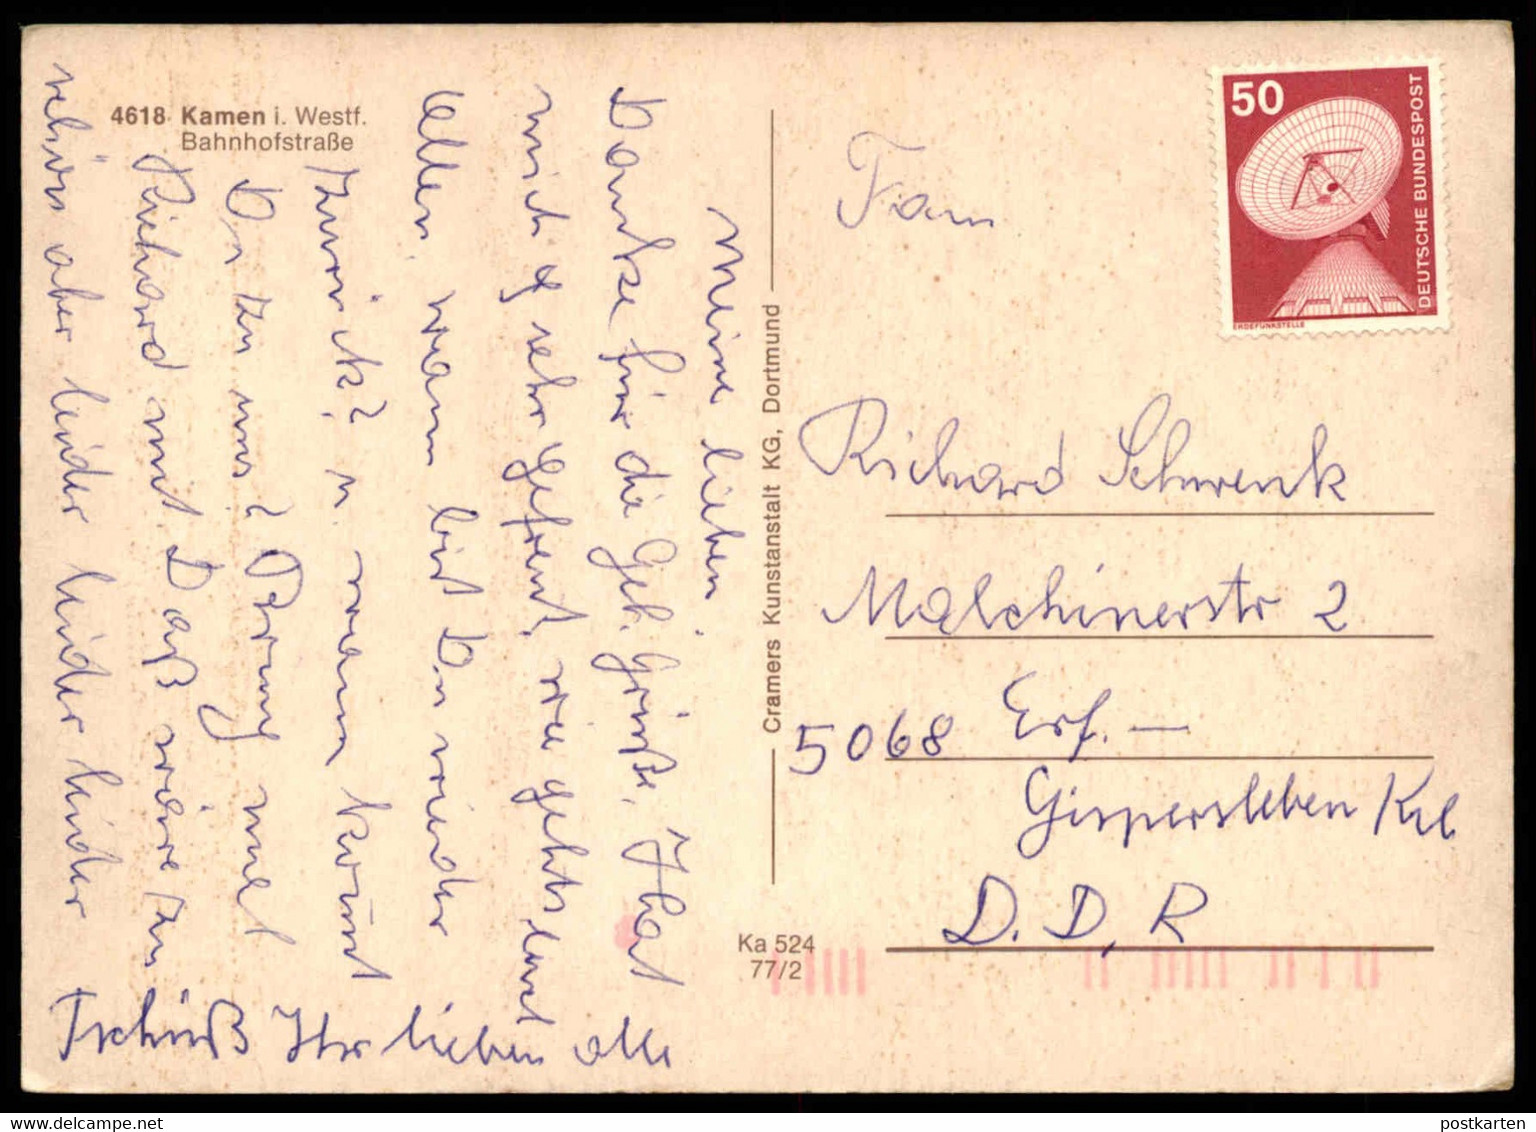 4618 Kamen i. Westf.
Bahnhofstraße
Meine lieben
Danke für die Geb. Grüße, Ihr habt
mich sehr gefreut, wie gehts Euch
allen, wann bist Du wieder
zurück? u. wann kommst
Du zu uns? Bring mal
Richard mit Das wäre zu
schön aber leider leider leider
Tschüß Ihr lieben alle
Cramers Kunstanstalt KG, Dortmund
Ka 524
77/2
50
DEUTSCHE BUNDESPOST
ERDEFUNKSTELLE
Fam
Richard Schwenk
Malchinerstr 2
5068 Erf. —
Gispersleben/Kil
D. D. R
postkarten